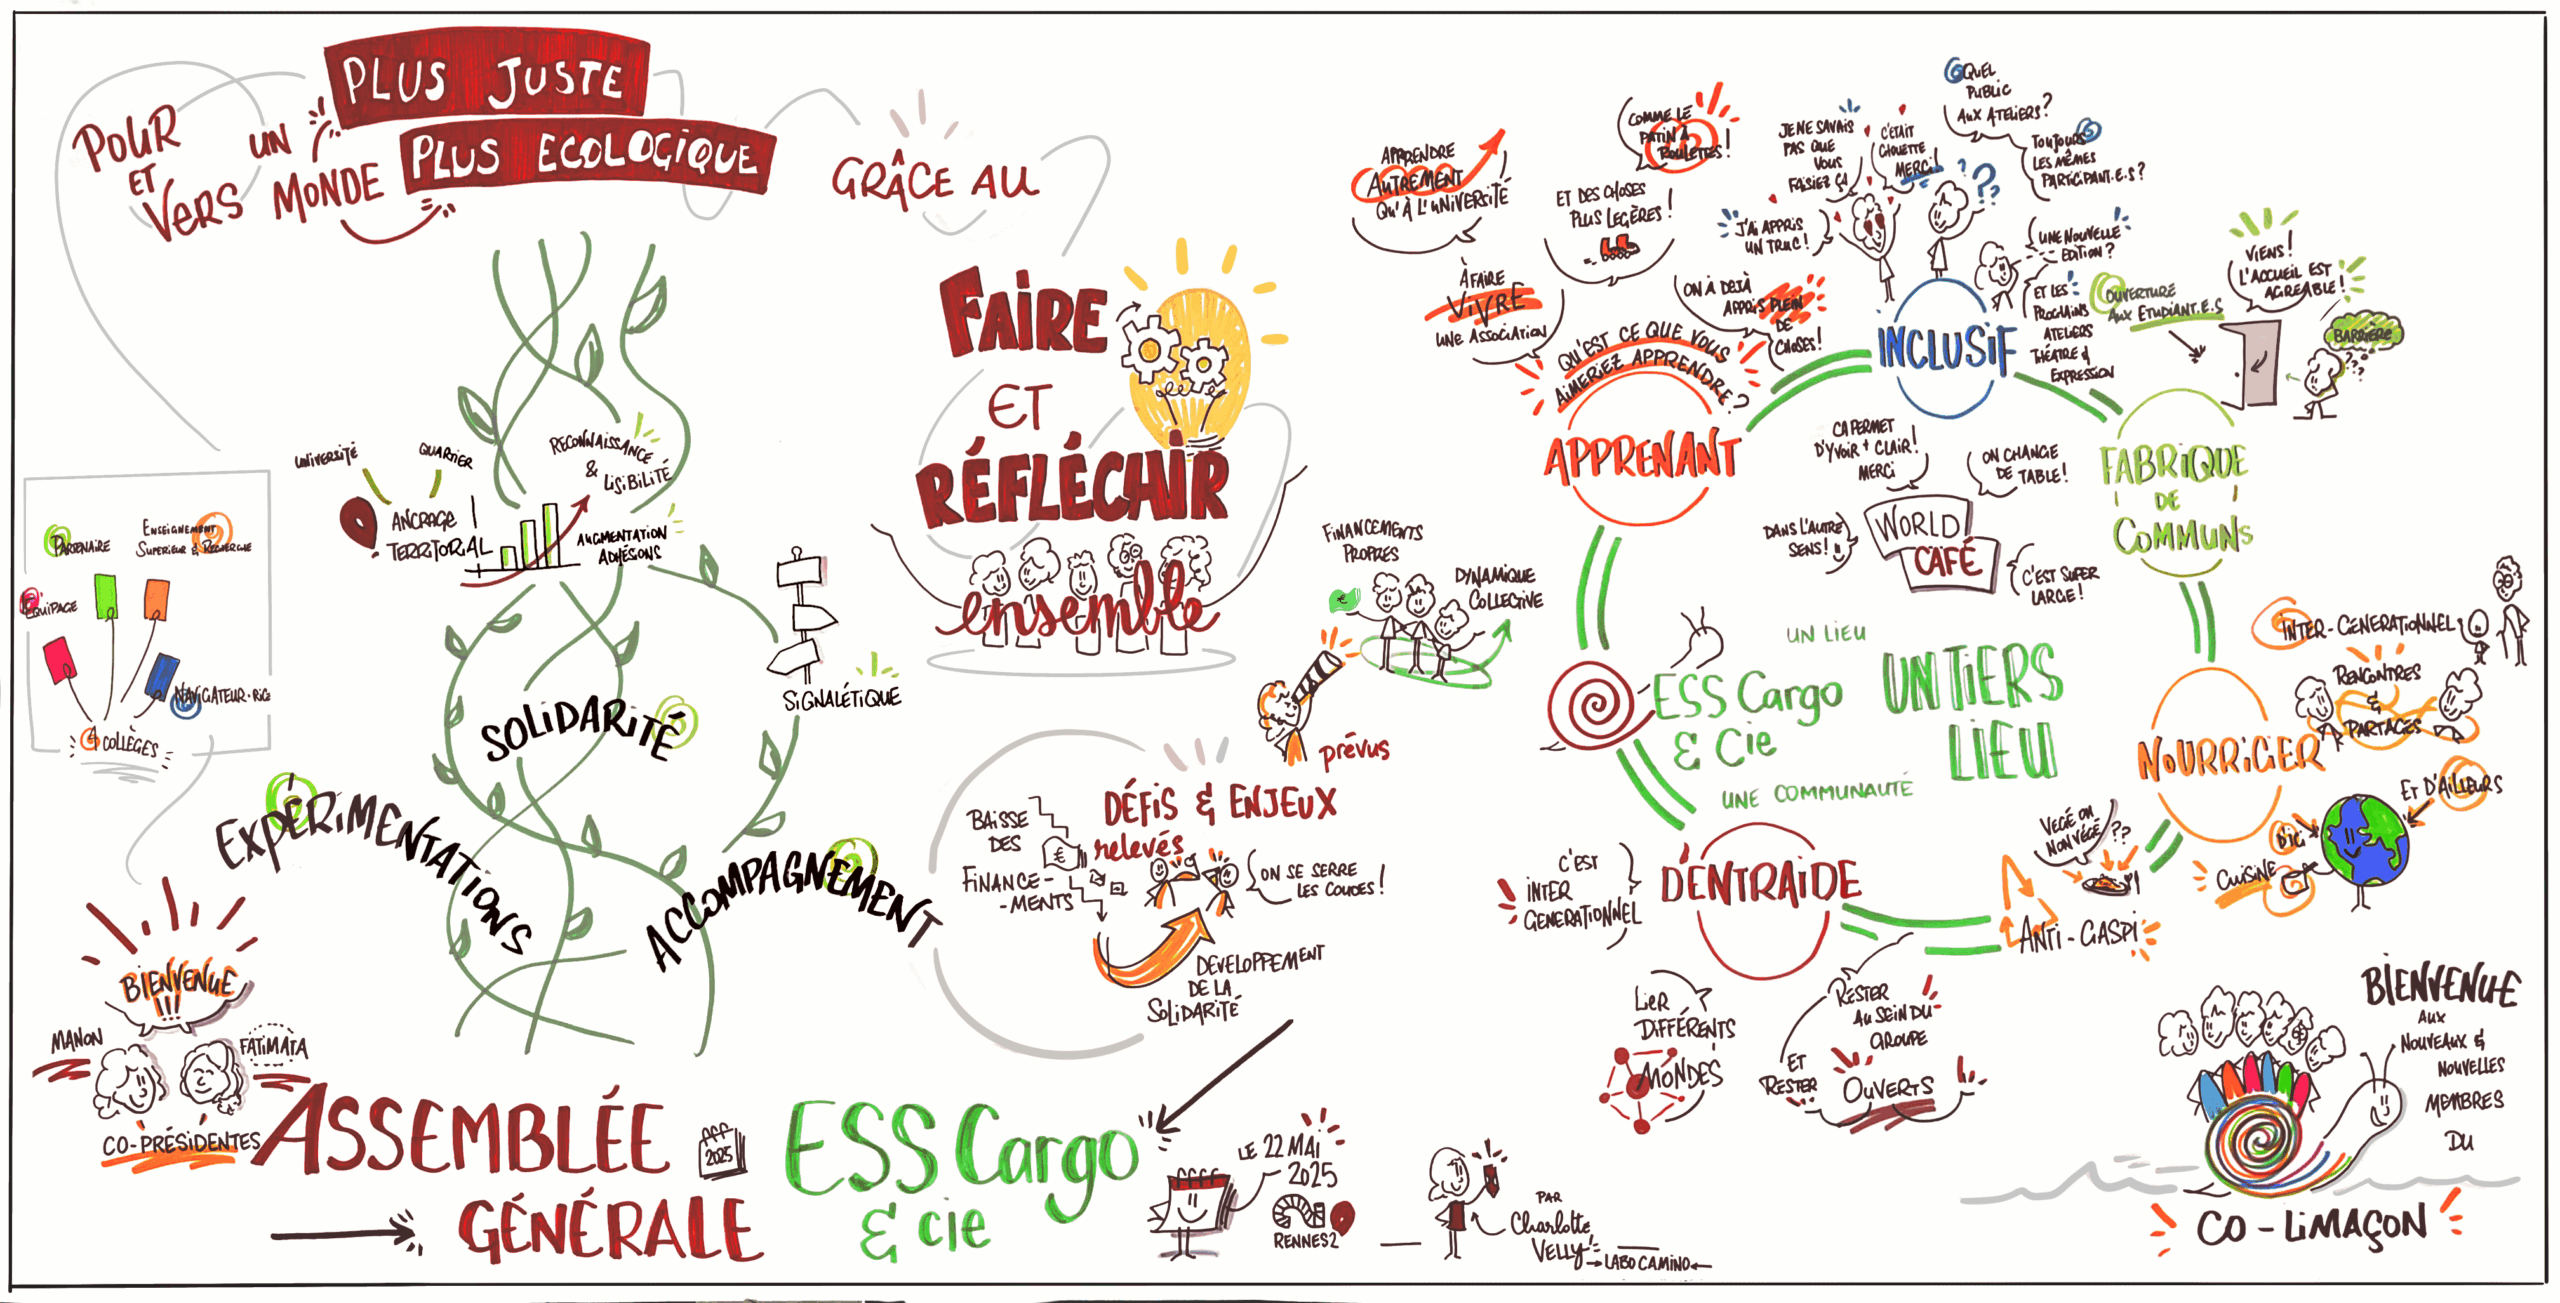 POUR
ET
VERS
UN
MONDE
PLUS JUSTE
PLUS ECOLOGIQUE
GRÂCE AU
FAIRE
ET
RÉFLÉCHIR
ensemble
UNIVERSITÉ
QUARTIER
ANCRAGE
TERRITORIAL
RECONNAISSANCE
& LISIBILITÉ
AUGMENTATION
ADHÉSIONS
SIGNALÉTIQUE
PARTENAIRE
ENSEIGNEMENT
SUPERIEUR & RECHERCHE
EQUIPAGE
NAVIGATEUR·RICE
4 COLLÈGES
SOLIDARITÉ
EXPÉRIMENTATIONS
ACCOMPAGNEMENT
BIENVENUE
!!!
MANON
FATIMATA
CO-PRÉSIDENTES
ASSEMBLÉE
GÉNÉRALE
2025
ESS Cargo
& cie
LE 22 MAI
2025
RENNES 2
PAR
Charlotte
VELLY
LABO CAMINO
DÉFIS & ENJEUX
relevés
prévus
BAISSE
DES
FINANCE-
-MENTS
€
ON SE SERRE
LES COUDES !
DEVELOPPEMENT
DE LA
SOLIDARITÉ
FINANCEMENTS
PROPRES
€
DYNAMIQUE
COLLECTIVE
APPRENDRE
AUTREMENT
QU'À L'UNIVERSITÉ
COMME LE
PATIN À
ROULETTES !
ET DES CHOSES
PLUS LEGÈRES !
À FAIRE
VIVRE
UNE ASSOCIATION
ON À DEJÀ
APPRIS PLEIN
DE
CHOSES !
QU'EST CE QUE VOUS
AIMERIEZ APPRENDRE ?
APPRENANT
JE NE SAVAIS
PAS QUE
VOUS
FAISIEZ ÇA
C'ÉTAIT
CHOUETTE
MERCI !
J'AI APPRIS
UN TRUC !
QUEL
PUBLIC
AUX ATELIERS ?
TOUJOURS
LES MÊMES
PARTICIPANT.E.S ?
? ?
UNE NOUVELLE
EDITION ?
ET LES
PROCHAINS
ATELIERS
THÉATRE &
EXPRESSION
INCLUSIF
OUVERTURE
AUX ETUDIANT.E.S
VIENS !
L'ACCUEIL EST
AGREABLE !
BARRIÈRE
???
FABRIQUE
DE
COMMUNS
CA PERMET
D'Y VOIR + CLAIR !
MERCI
ON CHANGE
DE TABLE !
DANS L'AUTRE
SENS !
WORLD
CAFÉ
C'EST SUPER
LARGE !
UN LIEU
ESS Cargo
& Cie
UN TIERS
LIEU
UNE COMMUNAUTÉ
INTER-GENERATIONNEL
RENCONTRES
&
PARTAGES
NOURRICIER
ET D'AILLEURS
D'ICI
CUISINE
VEGÉ OU
NON VÉGÉ ??
ANTI-GASPI
D'ENTRAIDE
C'EST
INTER
GENERATIONNEL
LIER
DIFFÉRENTS
MONDES
RESTER
AU SEIN DU
GROUPE
ET
RESTER
OUVERTS
BIENVENUE
AUX
NOUVEAUX &
NOUVELLES
MEMBRES
DU
CO-LIMAÇON